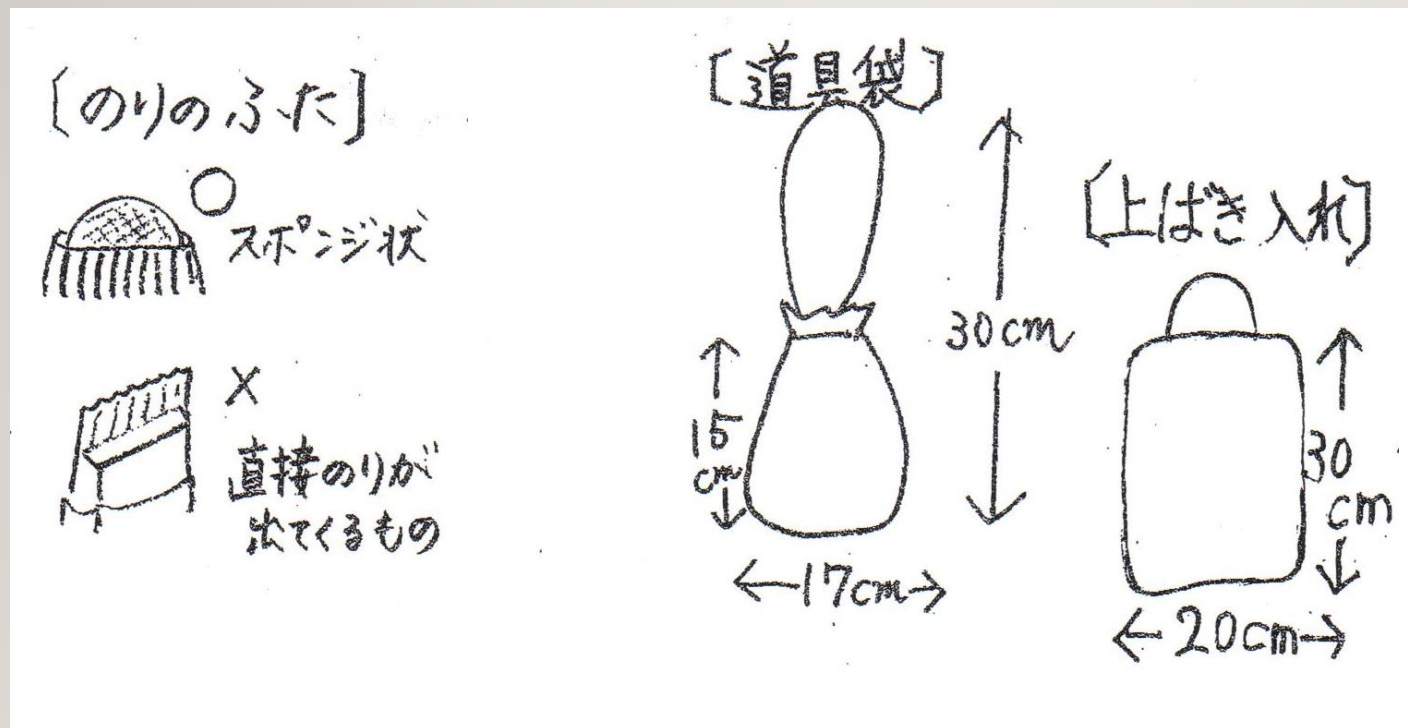 [のりのふた]
○
スポンジ状
×
直接のりが
出てくるもの
[道具袋]
30cm
15
cm
←17cm→
[上ばき入れ]
30
cm
←20cm→